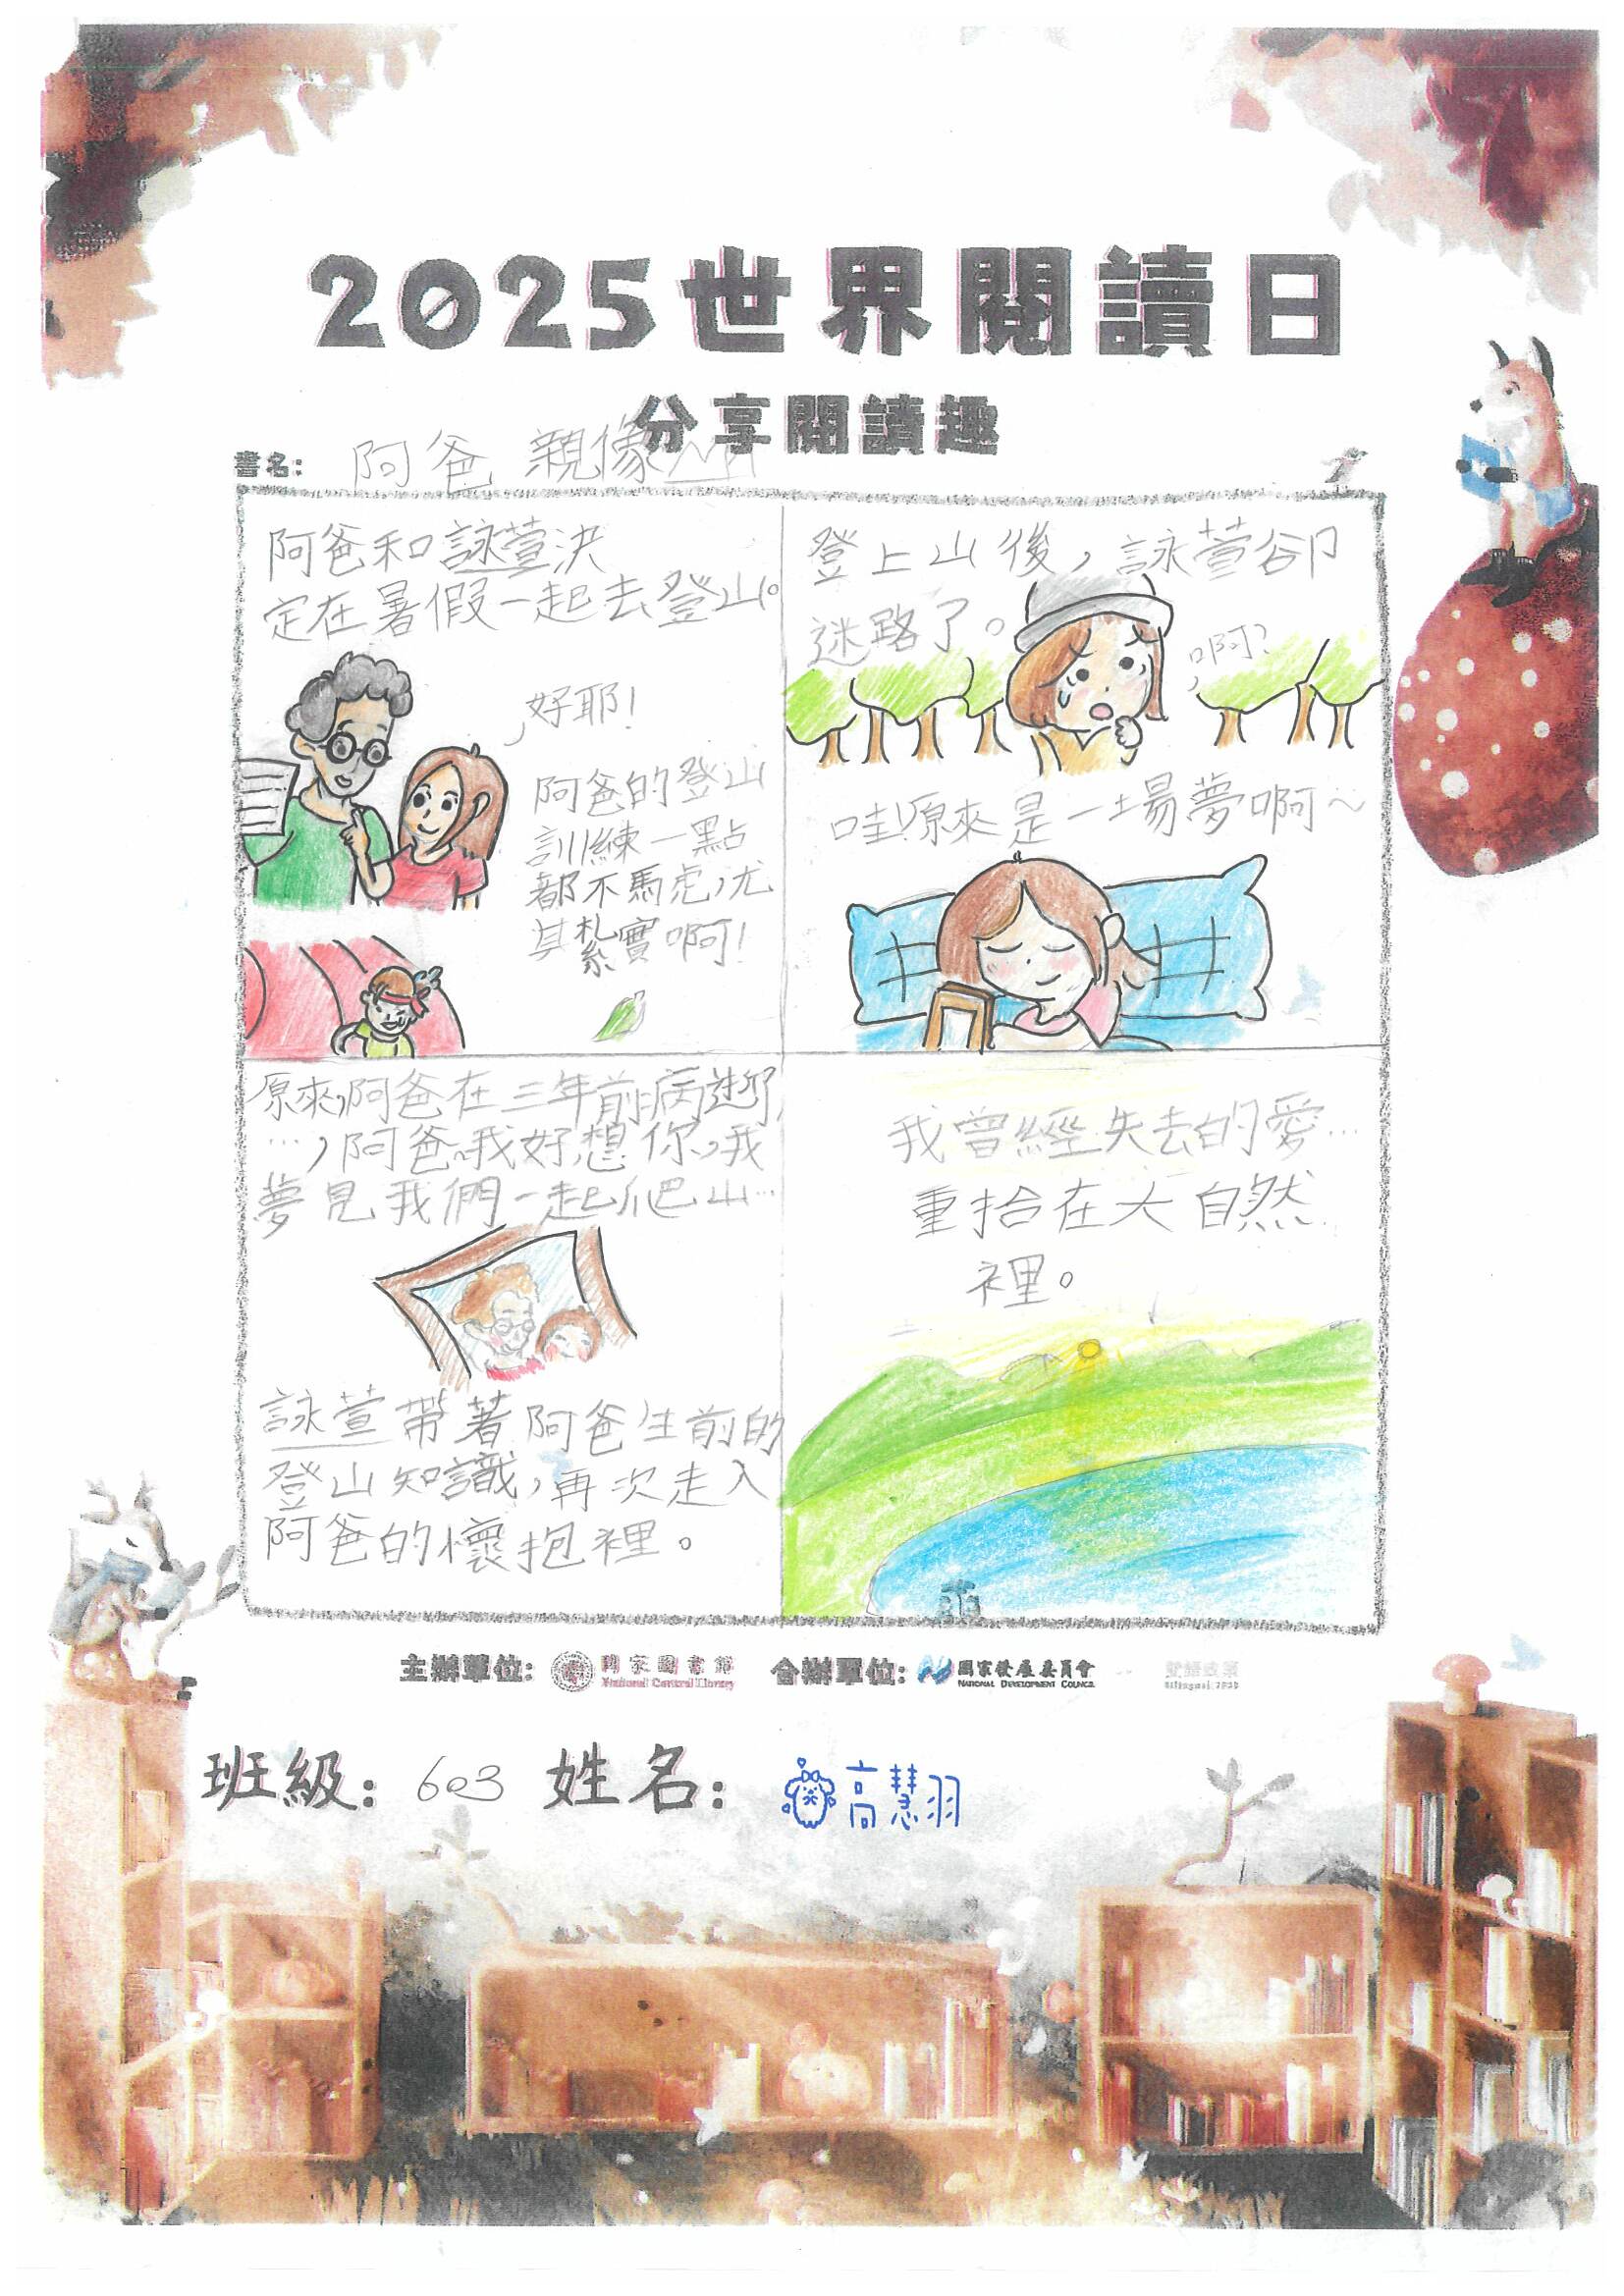 2025世界閱讀日
分享閱讀趣
書名：阿爸親像山
阿爸和詠萱決
定在暑假一起去登山。
好耶！
阿爸的登山
訓練一點
都不馬虎，尤
其紮實啊！
登上山後，詠萱卻
迷路了。
啊？
哇！原來是一場夢啊～
原來，阿爸在三年前病逝
…，阿爸，我好想你，我
夢見我們一起爬山…
詠萱帶著阿爸生前的
登山知識，再次走入
阿爸的懷抱裡。
我曾經失去的愛…
重拾在大自然
裡。
主辦單位：國家圖書館
National Central Library
合辦單位：國家發展委員會
NATIONAL DEVELOPMENT COUNCIL
班級：603 姓名：高慧羽